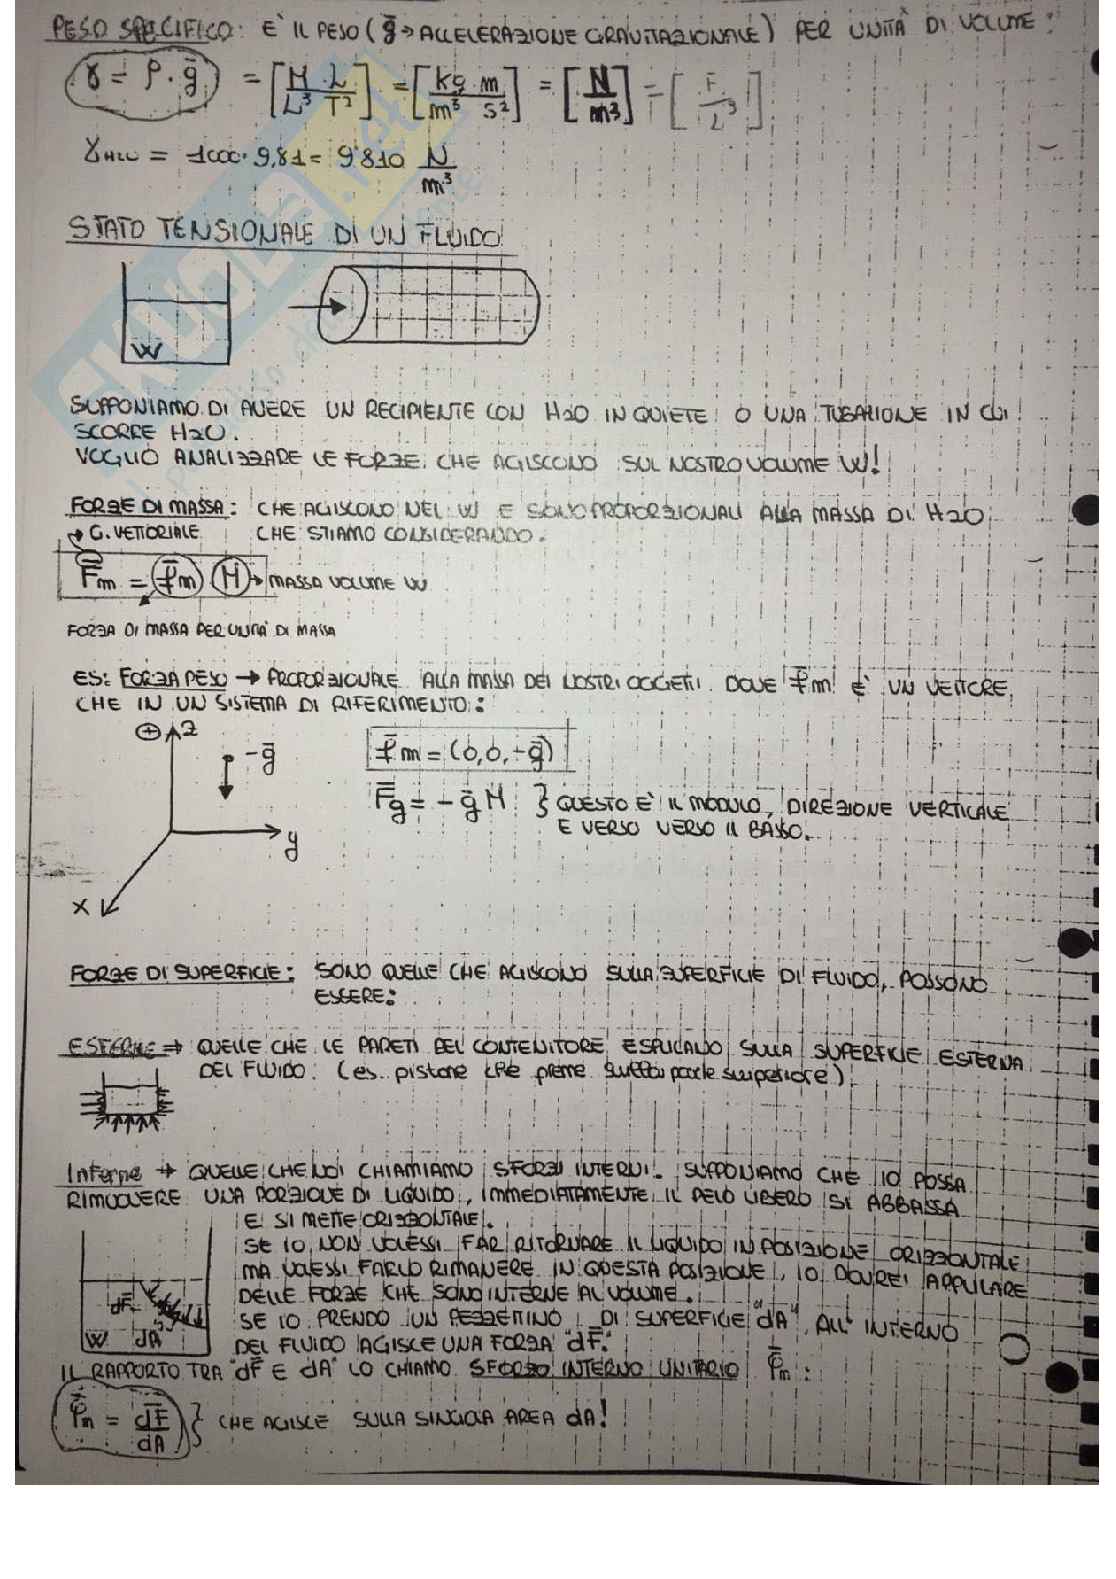 PESO SPECIFICO: E' IL PESO (ḡ → ACCELERAZIONE GRAVITAZIONALE) PER UNITÀ DI VOLUME:
γ = ρ · ḡ = [M/L³ · L/T²] = [kg/m³ · m/s²] = [N/m³] = [F/L³]
γH2O = 1000 · 9,81 = 9'810 N/m³
STATO TENSIONALE DI UN FLUIDO
W
SUPPONIAMO DI AVERE UN RECIPIENTE CON H2O IN QUIETE O UNA TUBAZIONE IN CUI
SCORRE H2O.
VOGLIO ANALIZZARE LE FORZE CHE AGISCONO SUL NOSTRO VOLUME W!
FORZE DI MASSA: CHE AGISCONO NEL W E SONO PROPORZIONALI ALLA MASSA DI H2O
→ G. VETTORIALE CHE STIAMO CONSIDERANDO.
F̄m = f̄m M → MASSA VOLUME W
FORZA DI MASSA PER UNITÀ DI MASSA
ES: FORZA PESO → PROPORZIONALE ALLA MASSA DEI NOSTRI OGGETTI. DOVE f̄m E' UN VETTORE,
CHE IN UN SISTEMA DI RIFERIMENTO:
+ z
-ḡ
f̄m = (0,0,-ḡ)
F̄g = -ḡ M } QUESTO E' IL MODULO, DIREZIONE VERTICALE
E VERSO VERSO IL BASSO.
y
x
FORZE DI SUPERFICIE: SONO QUELLE CHE AGISCONO SULLA SUPERFICIE DI FLUIDO, POSSONO
ESSERE:
ESTERNE ⇒ QUELLE CHE LE PARETI DEL CONTENITORE ESPLICANO SULLA SUPERFICIE ESTERNA
DEL FLUIDO: (es. pistone che preme sulla parte superiore)
Interne → QUELLE CHE NOI CHIAMIAMO SFORZI INTERNI. SUPPONIAMO CHE IO POSSA
RIMUOVERE UNA PORZIONE DI LIQUIDO, IMMEDIATAMENTE IL PELO LIBERO SI ABBASSA
E SI METTE ORIZZONTALE.
SE IO NON VOLESSI FAR RITORNARE IL LIQUIDO IN POSIZIONE ORIZZONTALE
MA VOLESSI FARLO RIMANERE IN QUESTA POSIZIONE, IO DOVREI APPLICARE
DELLE FORZE CHE SONO INTERNE AL VOLUME.
SE IO PRENDO UN PEZZETTINO DI SUPERFICIE "dA", ALL'INTERNO
DEL FLUIDO AGISCE UNA FORZA "dF̄".
dF̄
W dA
IL RAPPORTO TRA "dF̄ E dA" LO CHIAMO SFORZO INTERNO UNITARIO φ̄n:
φ̄n = dF̄/dA } CHE AGISCE SULLA SINGOLA AREA dA!